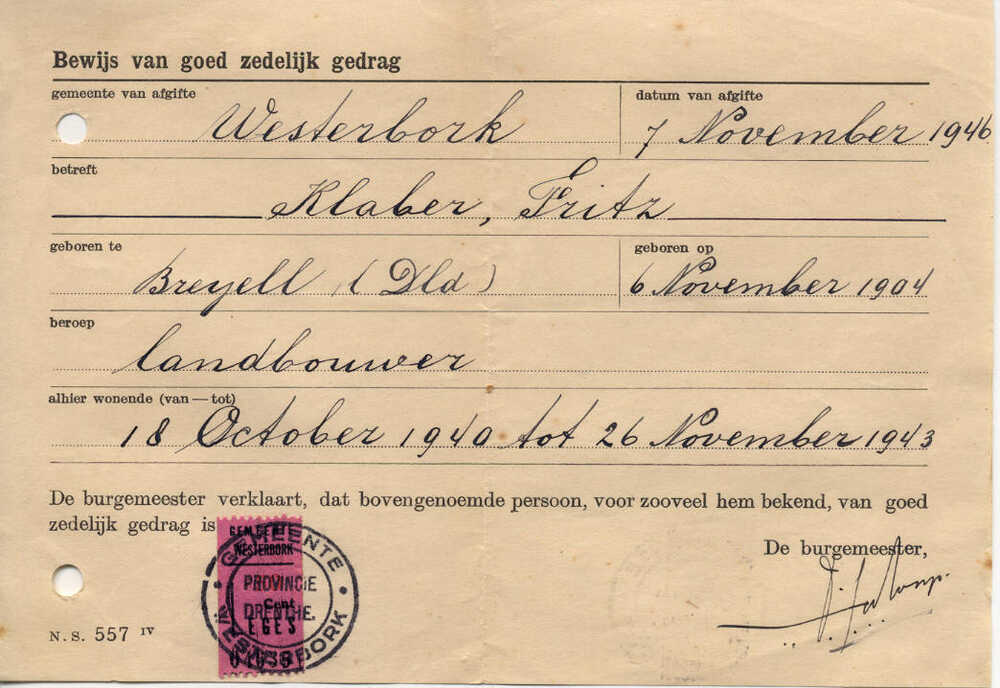 Bewijs van goed zedelijk gedrag
gemeente van afgifte datum van afgifte
Westerbork 7 November 1946
betreft
Klaber, Fritz
geboren te geboren op
Breyell (Dld) 6 November 1904
beroep
landbouwer
alhier wonende (van—tot)
18 October 1940 tot 26 November 1943
De burgemeester verklaart, dat bovengenoemde persoon, voor zooveel hem bekend, van goed
zedelijk gedrag is
De burgemeester,
GEMEENTE
WESTERBORK
GEMEENTE
PROVINCIE
Cent
DRENTHE.
LEGES
WESTERBORK
N.S. 557 IV